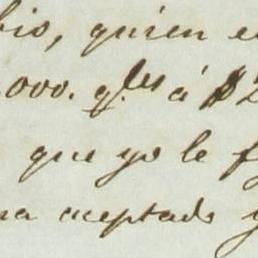 bio, quien e
.000. q.les á $2
que yo le f
na aceptado y